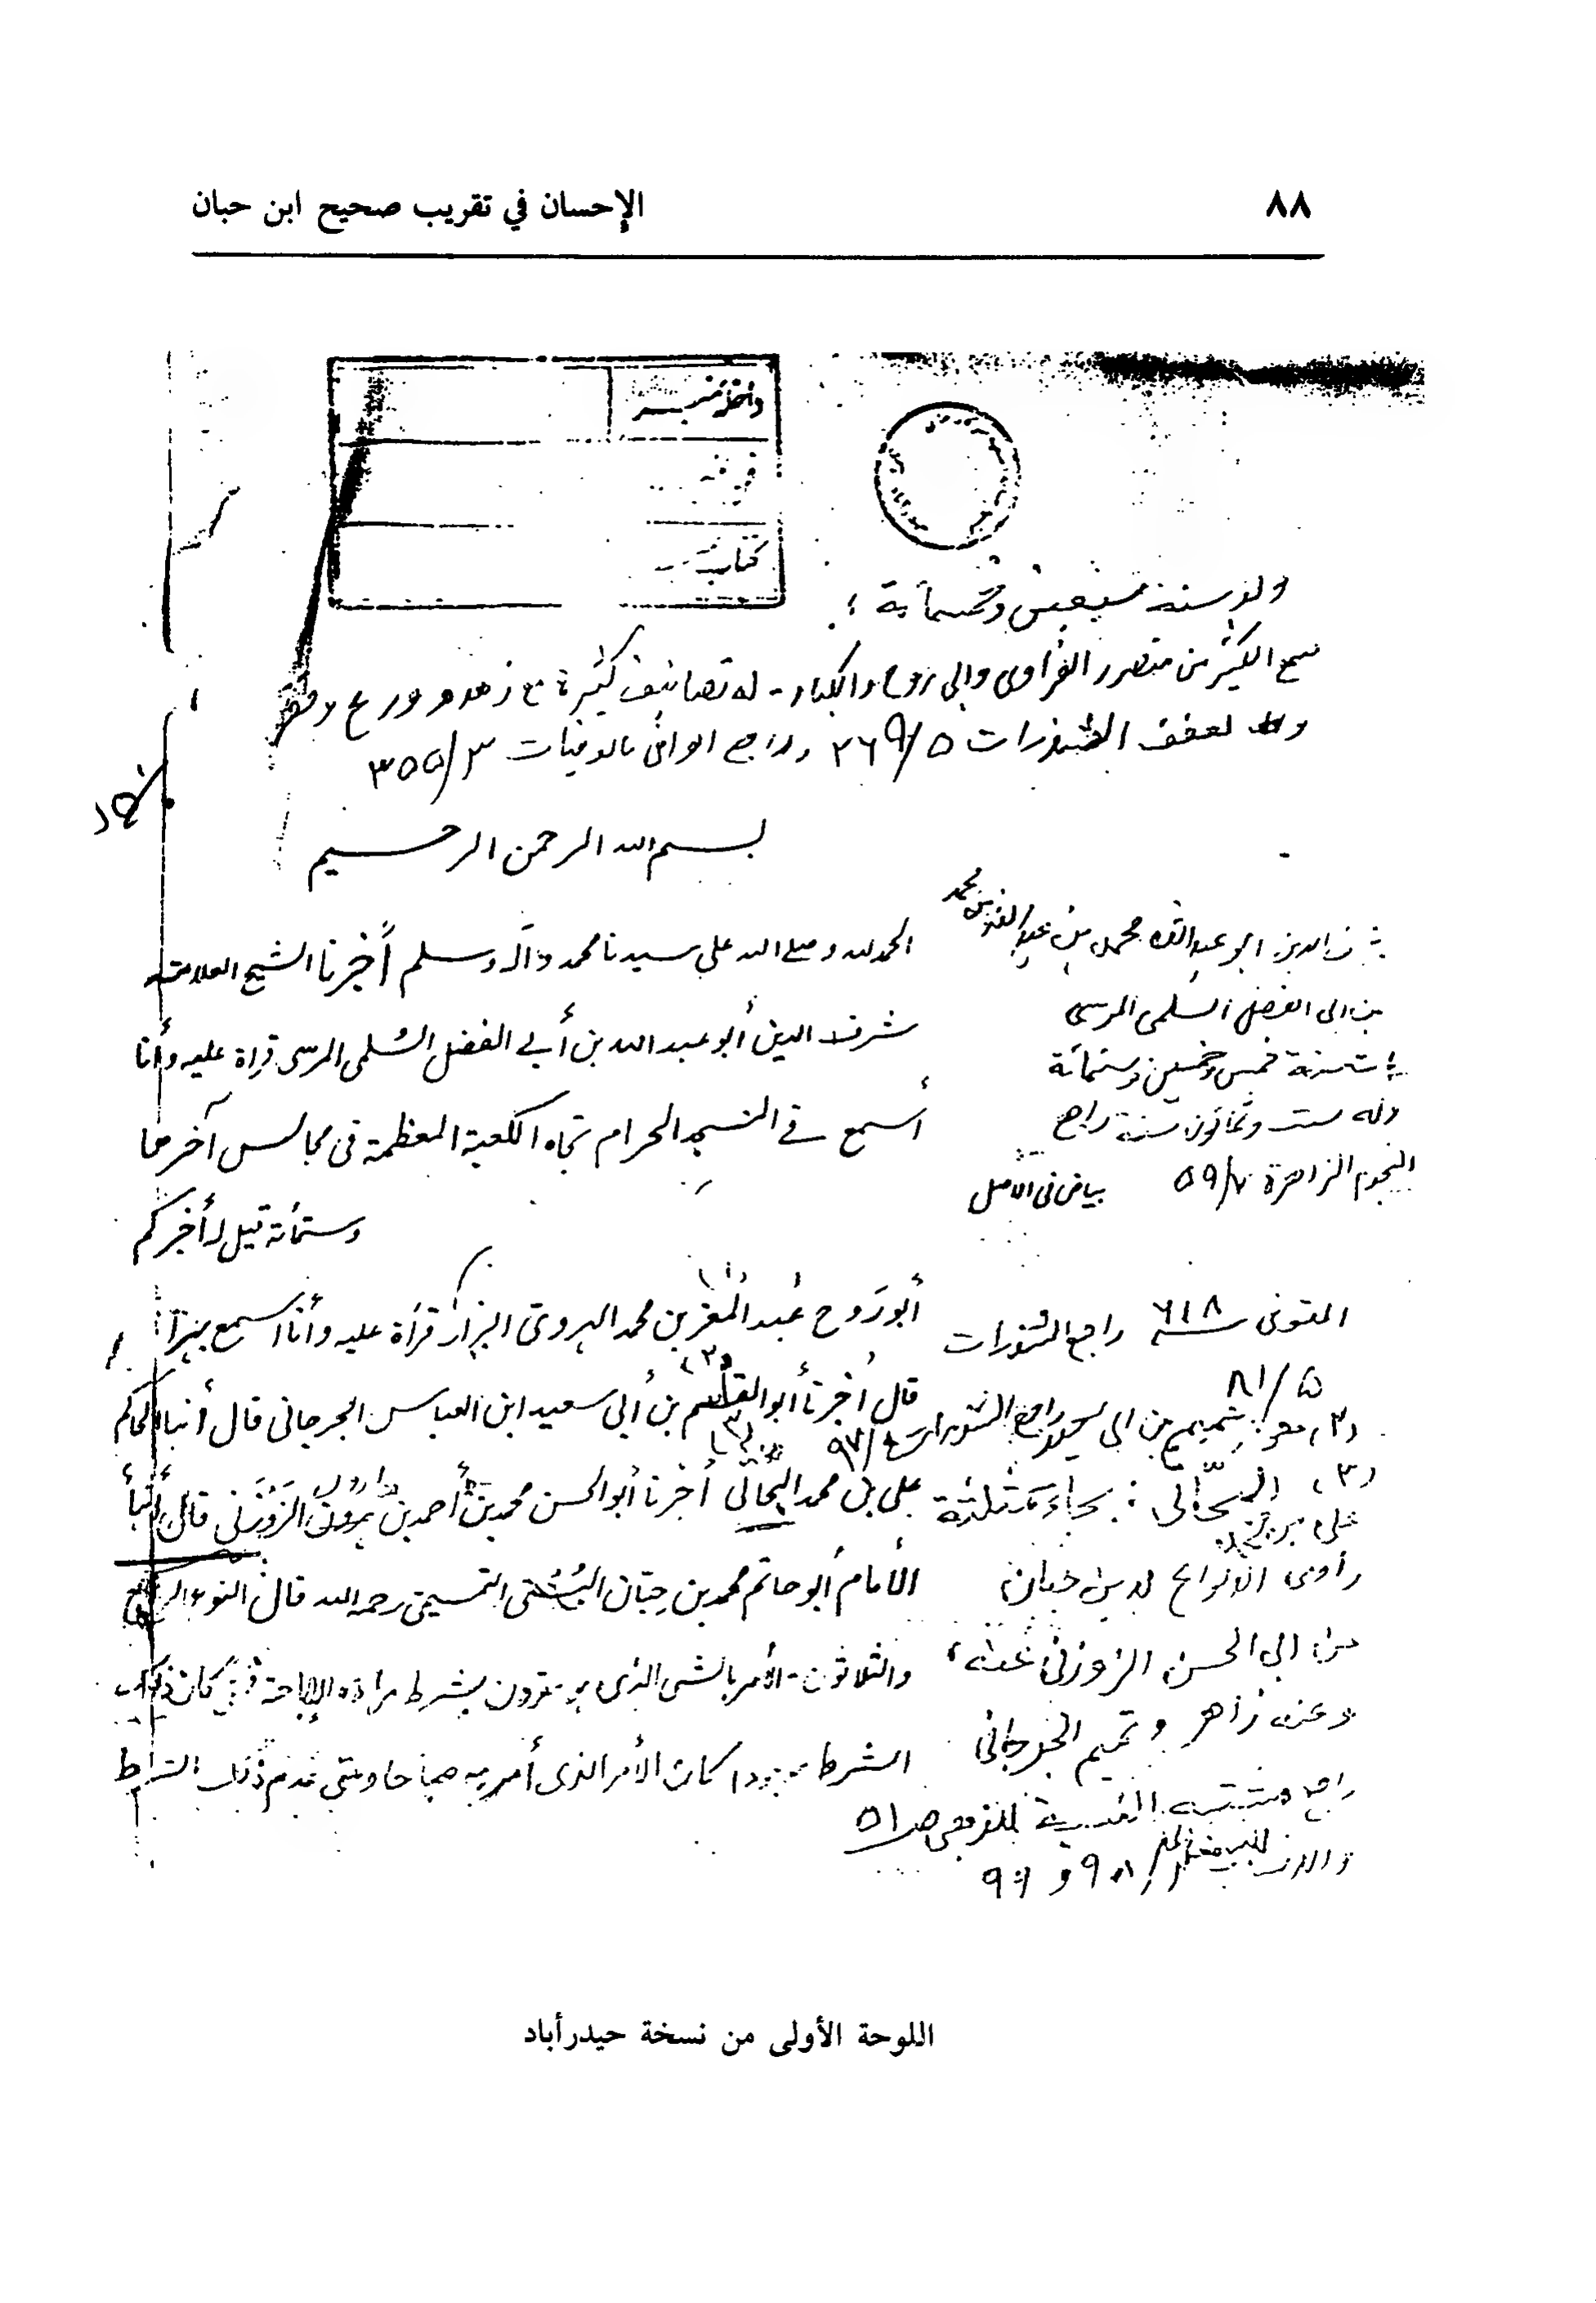 ٨٨
الإحسان في تقريب صحيح ابن حبان
داخلہ نمبر
كتاب
ولد سنة سبعين وخمسمائة
سمع الكثير من منصور الفراوى وابى روح والكبار - له تصانيف كثيرة مع زهد و ورع وفقر
الشذرات ٥/٢٦٩ وراجع الوافى بالوفيات ٣/٣٥٥
بسم الله الرحمن الرحيم
الحمد لله وصلى الله على سيدنا محمد وآله وسلم أخبرنا الشيخ العلامة
شرف الدين أبو عبد الله بن أبي الفضل السُلمى المرسى قراءة عليه وأنا
أسمع في المسجد الحرام تجاه الكعبة المعظمة فى مجالس آخرها
وستمائة قيل له أخبركم
أبو رَوح عبد المعز بن محمد الهروى البزاز قراءة عليه وأنا أسمع بهراة
قال أخبرنا أبو القاسم (٢) بن أبى سعيد ابن العباس الجرجانى قال أنبا الحاكم
على بن محمد البحاثى (٣) أخبرنا أبو الحسن محمد بن أحمد بن هارون الزَوْزَنى قال أنبأ
الأمام أبو حاتم محمد بن حِبّان البُستى التميمى رحمه الله قال النوع الرابع
والثلاثون - الأمر بالشى الذى هو مقرون بشرط مراده الإباحة كان ذلك
الشرط موجودا كان الأمر الذى أمر به مباحا ومتى عدم ذلك الشرط
شرف الدين ابو عبد الله محمد بن عبد الله بن محمد
بن ابى الفضل السلمى المرسى
سنة خمس وخمسين وستمائة
وله ست وثمانون سنة راجع
النجوم الزاهرة ٧/٥٩
بياض فى الاصل
المتوفى سنة ٦١٨ راجع الشذرات
٥/٨١
(٢) هو: تميم بن ابى سعيد راجع الشذرات ٤/٩٧
(٣) البحّاثى: بحاء مثلثة
على بن محمد
راوى الانواع لابن حبان
من ابى الحسن الزوزنى عنه،
وعنه زاهر و تميم الجرجانى
راجع مشتبه النسبة للذهبى ص ٥١
اللوحة الأولى من نسخة حيدرأباد